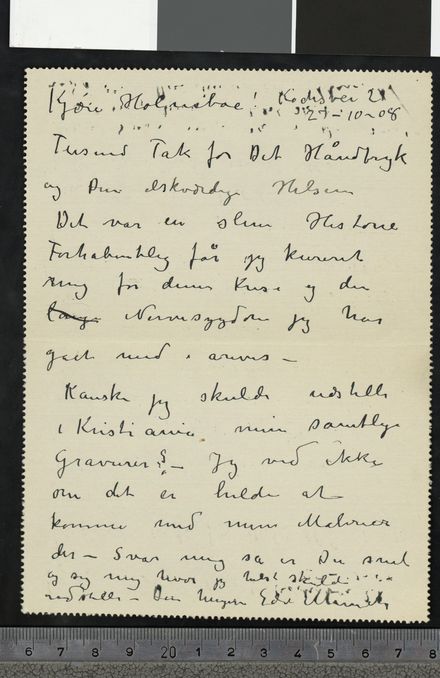 Kjære Holmsboe! Kochsvei 21
27-10-08
Tusend Tak for Det Håndtryk
og Din elskværdige Hilsen
Det var en slem Historie
Forhabentlig får jeg kureret
mig for denne Krise og den
lange Nervesygdom jeg har
gået med i årevis –
Kanske jeg skulde udstille
i Kristiania mine samtlige
Gravurer? – Jeg ved ikke
om det er heldig at
komme med mine Malerier
der – Svar mig så er Du snil
og sig mig hvor jeg helst skulde
udstille – Din hengivne Edv Munch
6 7 8 9 20 1 2 3 4 5 6 7 8